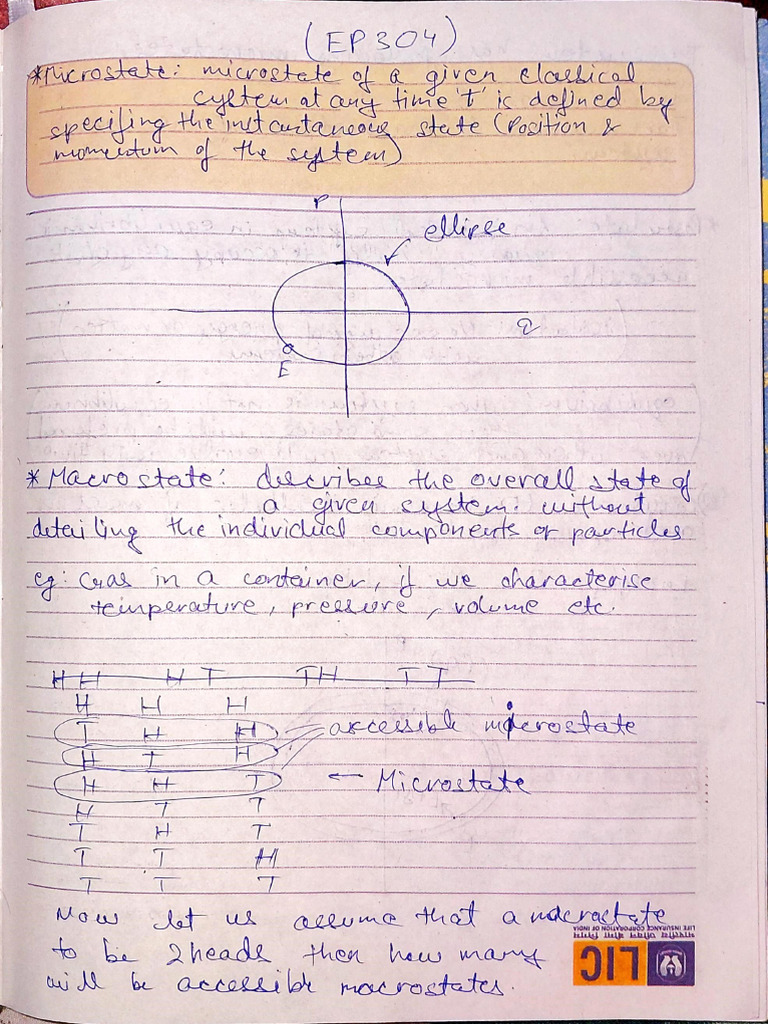 (EP304)
*Microstate: microstate of a given classical
cystem at any time 't' is defined by
specifing the instantaneous state (Position &
momentum of the system)
P
ellipse
q
E
* Macrostate: describes the overall state of
a given system. without
detailing the individual components or particles
eg: Gas in a container, if we characterise
temperature, pressure, volume etc.
HH HT TH TT
H H H
T H H accessible microstate
H T H
H H T ← Microstate
H T T
T H T
T T H
T T T
Now let us assume that a macrostate
to be 2 heads then how many
will be accessible macrostates.
LIC
भारतीय जीवन बीमा निगम
LIFE INSURANCE CORPORATION OF INDIA